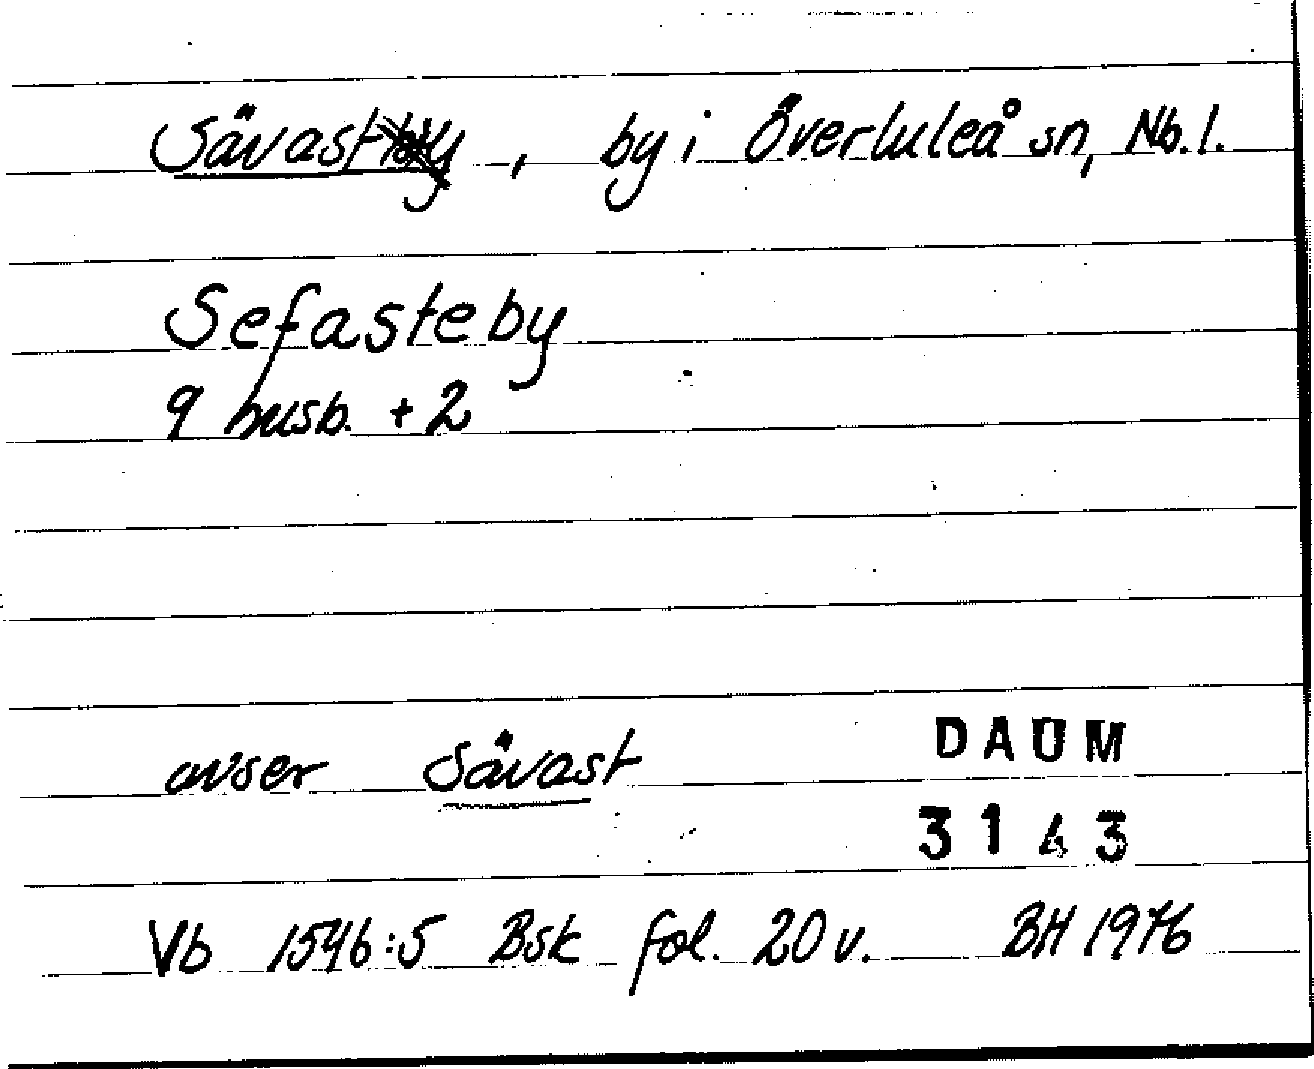 Sävast, by i Överluleå sn, Nb.l.
Sefasteby
9 husb. + 2
avser Sävast
DAUM
3143
Vb 1546:5 Bsk fol. 20 v. BH 1976